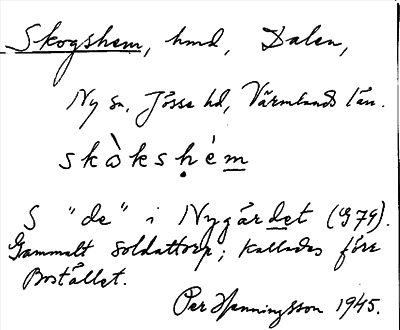 Skogshem, hmd, Dalen,
Ny sn, Jösse hd, Värmlands län.
skòksḥém
S "de" i Nygårdet (G79).
Gammalt soldattorp; kallades före
Bostället.
Per Henningsson 1945.